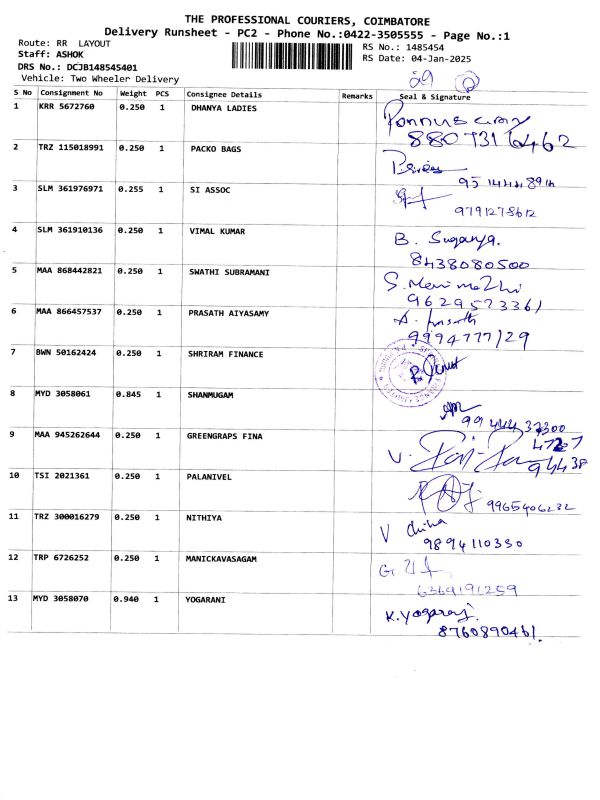 THE PROFESSIONAL COURIERS, COIMBATORE
Delivery Runsheet - PC2 - Phone No.:0422-3505555 - Page No.:1
Route: RR LAYOUT
RS No.: 1485454
Staff: ASHOK
RS Date: 04-Jan-2025
DRS No.: DCJB148545401
Vehicle: Two Wheeler Delivery
29
S No Consignment No Weight PCS Consignee Details Remarks Seal & Signature
1 KRR 5672760 0.250 1 DHANYA LADIES
2 TRZ 115018991 0.250 1 PACKO BAGS
3 SLM 361976971 0.255 1 SI ASSOC
9791278612
4 SLM 361910136 0.250 1 VIMAL KUMAR B. Suganya.
8438080500
5 MAA 868442821 0.250 1 SWATHI SUBRAMANI
9629573361
6 MAA 866457537 0.250 1 PRASATH AIYASAMY A. Prasath
9994777129
7 BWN 50162424 0.250 1 SHRIRAM FINANCE
8 MYD 3058061 0.845 1 SHANMUGAM
9 MAA 945262644 0.250 1 GREENGRAPS FINA
10 TSI 2021361 0.250 1 PALANIVEL
9965406232
11 TRZ 300016279 0.250 1 NITHIYA
9894110330
12 TRP 6726252 0.250 1 MANICKAVASAGAM
6369191259
13 MYD 3058070 0.940 1 YOGARANI K.Yogaraj.
8760890461.